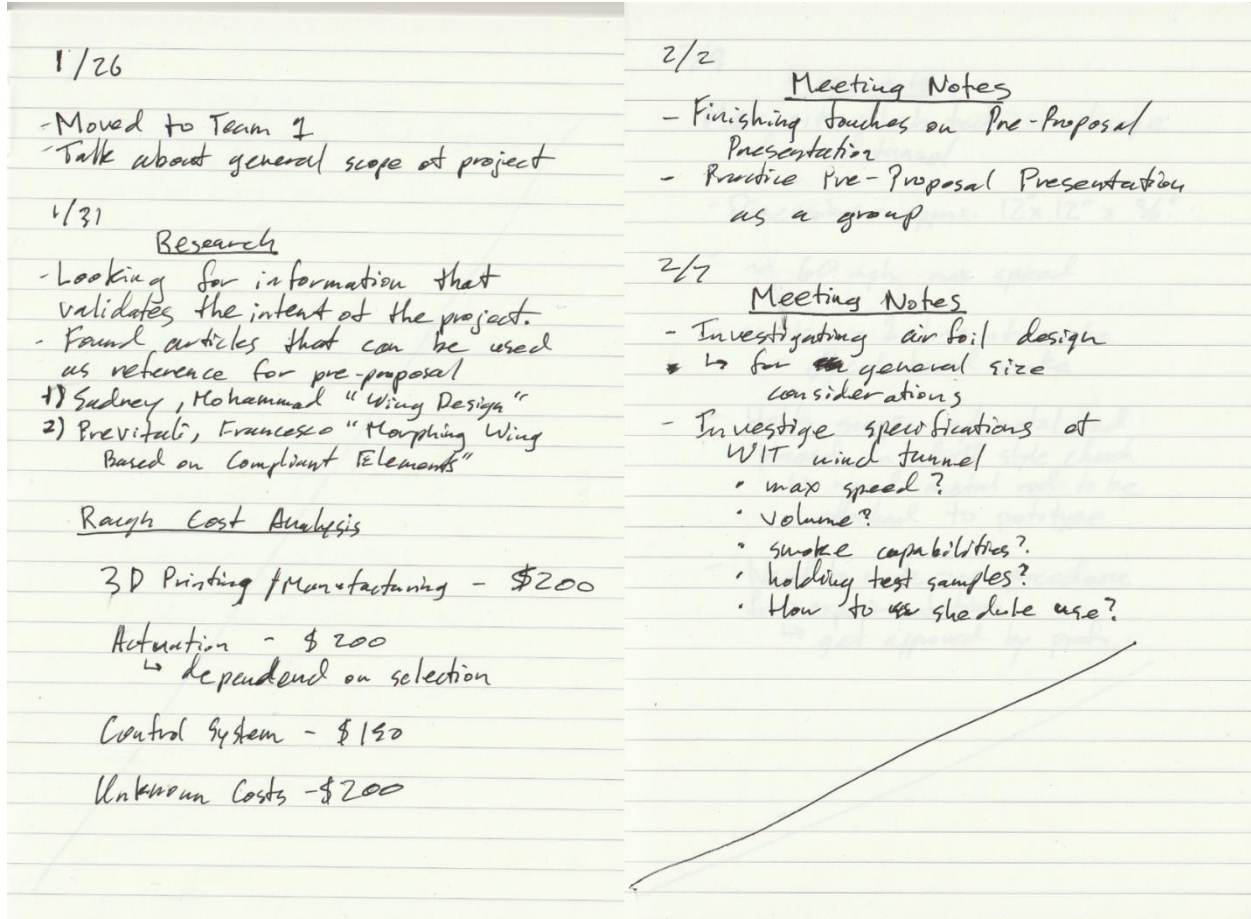 1/26
- Moved to Team 1
- Talk about general scope of project
1/31
Research
- Looking for information that
validates the intent of the project.
- Found articles that can be used
as reference for pre-proposal
1) Sadrey, Mohammad "Wing Design"
2) Previtali, Francesco "Morphing Wing
Based on Compliant Elements"
Rough Cost Analysis
3D Printing / Manufacturing - $200
Actuation - $200
↳ dependend on selection
Control System - $150
Unknown Costs - $200
2/2
Meeting Notes
- Finishing touches on Pre-Proposal
Presentation
- Practice Pre-Proposal Presentation
as a group
2/7
Meeting Notes
- Investigating air foil design
↳ for general size
considerations
- Investige specifications of
WIT wind tunnel
• max speed?
• volume?
• smoke capabilities?
• holding test samples?
• How to shedule use?